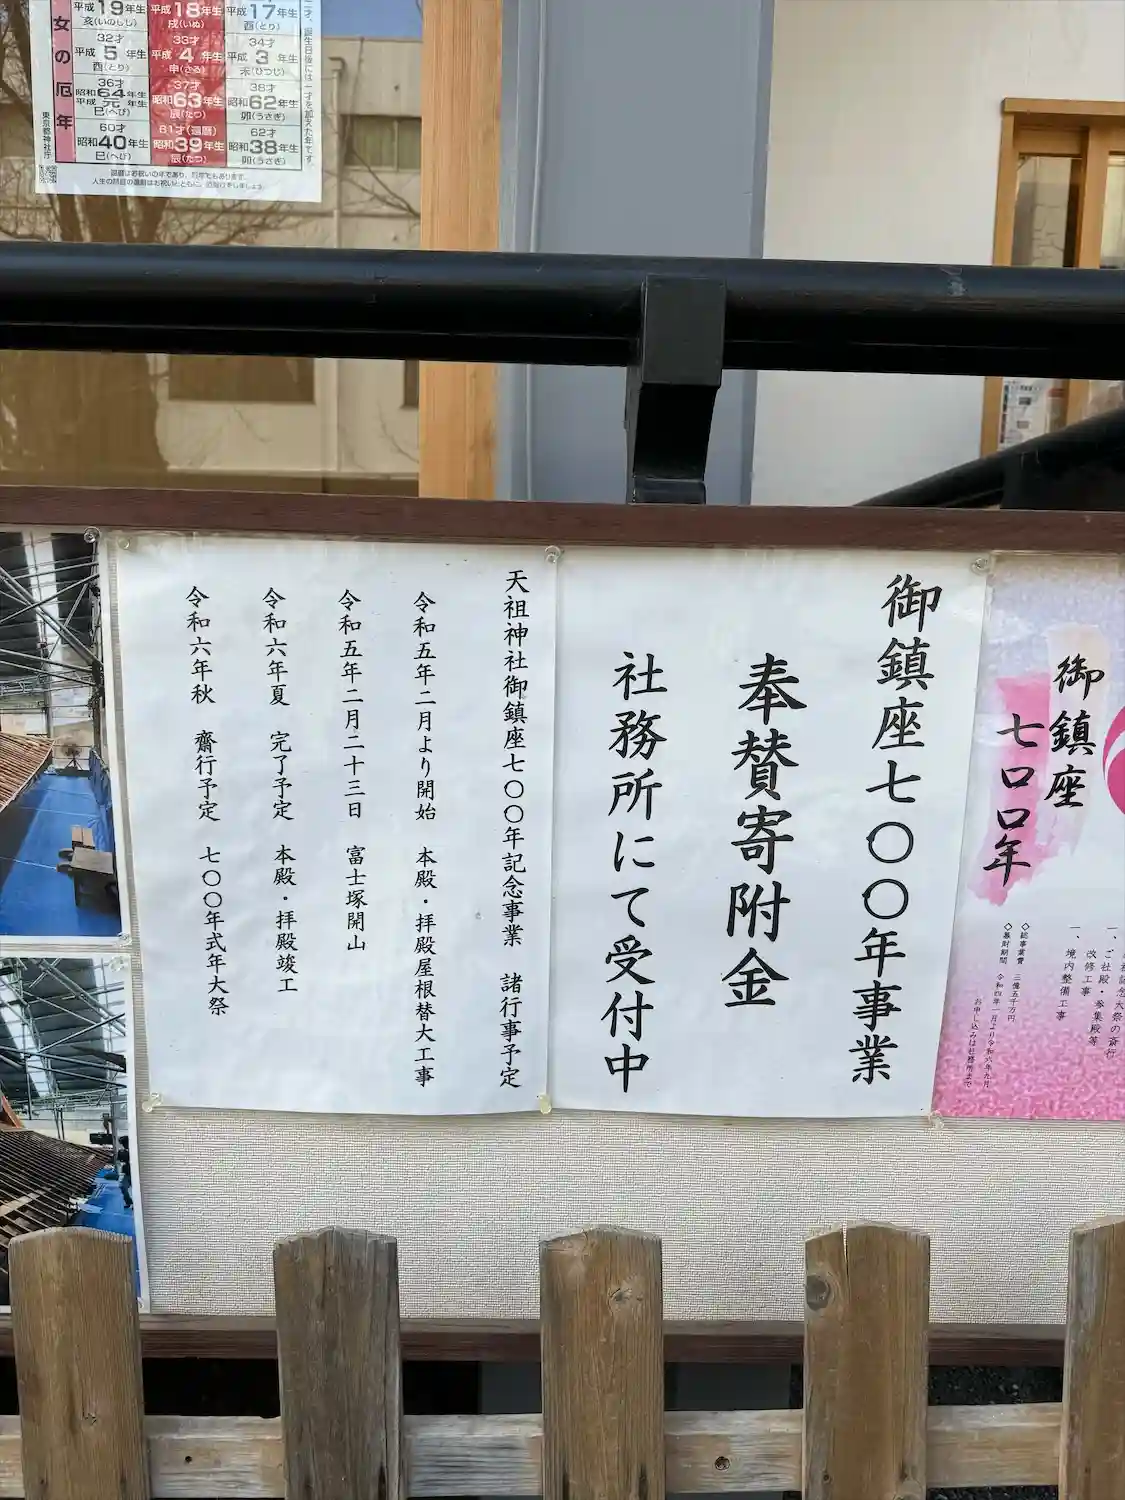 女の厄年
平成19年生
亥(いのしし)
平成18年生
戌(いぬ)
平成17年生
酉(とり)
32才
平成5年生
酉(とり)
33才
平成4年生
申(さる)
34才
平成3年生
未(ひつじ)
36才
昭和64年生
平成元年生
巳(へび)
37才
昭和63年生
辰(たつ)
38才
昭和62年生
卯(うさぎ)
60才
昭和40年生
巳(へび)
61才(還暦)
昭和39年生
辰(たつ)
62才
昭和38年生
卯(うさぎ)
東京都神社庁
御鎮座
七〇〇年
一、境内整備工事
◇総事業費 三億五千万円
◇募財期間 令和四年一月より令和六年九月
お申し込みは社務所まで
御鎮座七〇〇年事業
奉賛寄附金
社務所にて受付中
天祖神社御鎮座七〇〇年記念事業 諸行事予定
令和五年二月より開始 本殿・拝殿屋根替大工事
令和五年二月二十三日 富士塚開山
令和六年夏 完了予定 本殿・拝殿竣工
令和六年秋 齋行予定 七〇〇年式年大祭